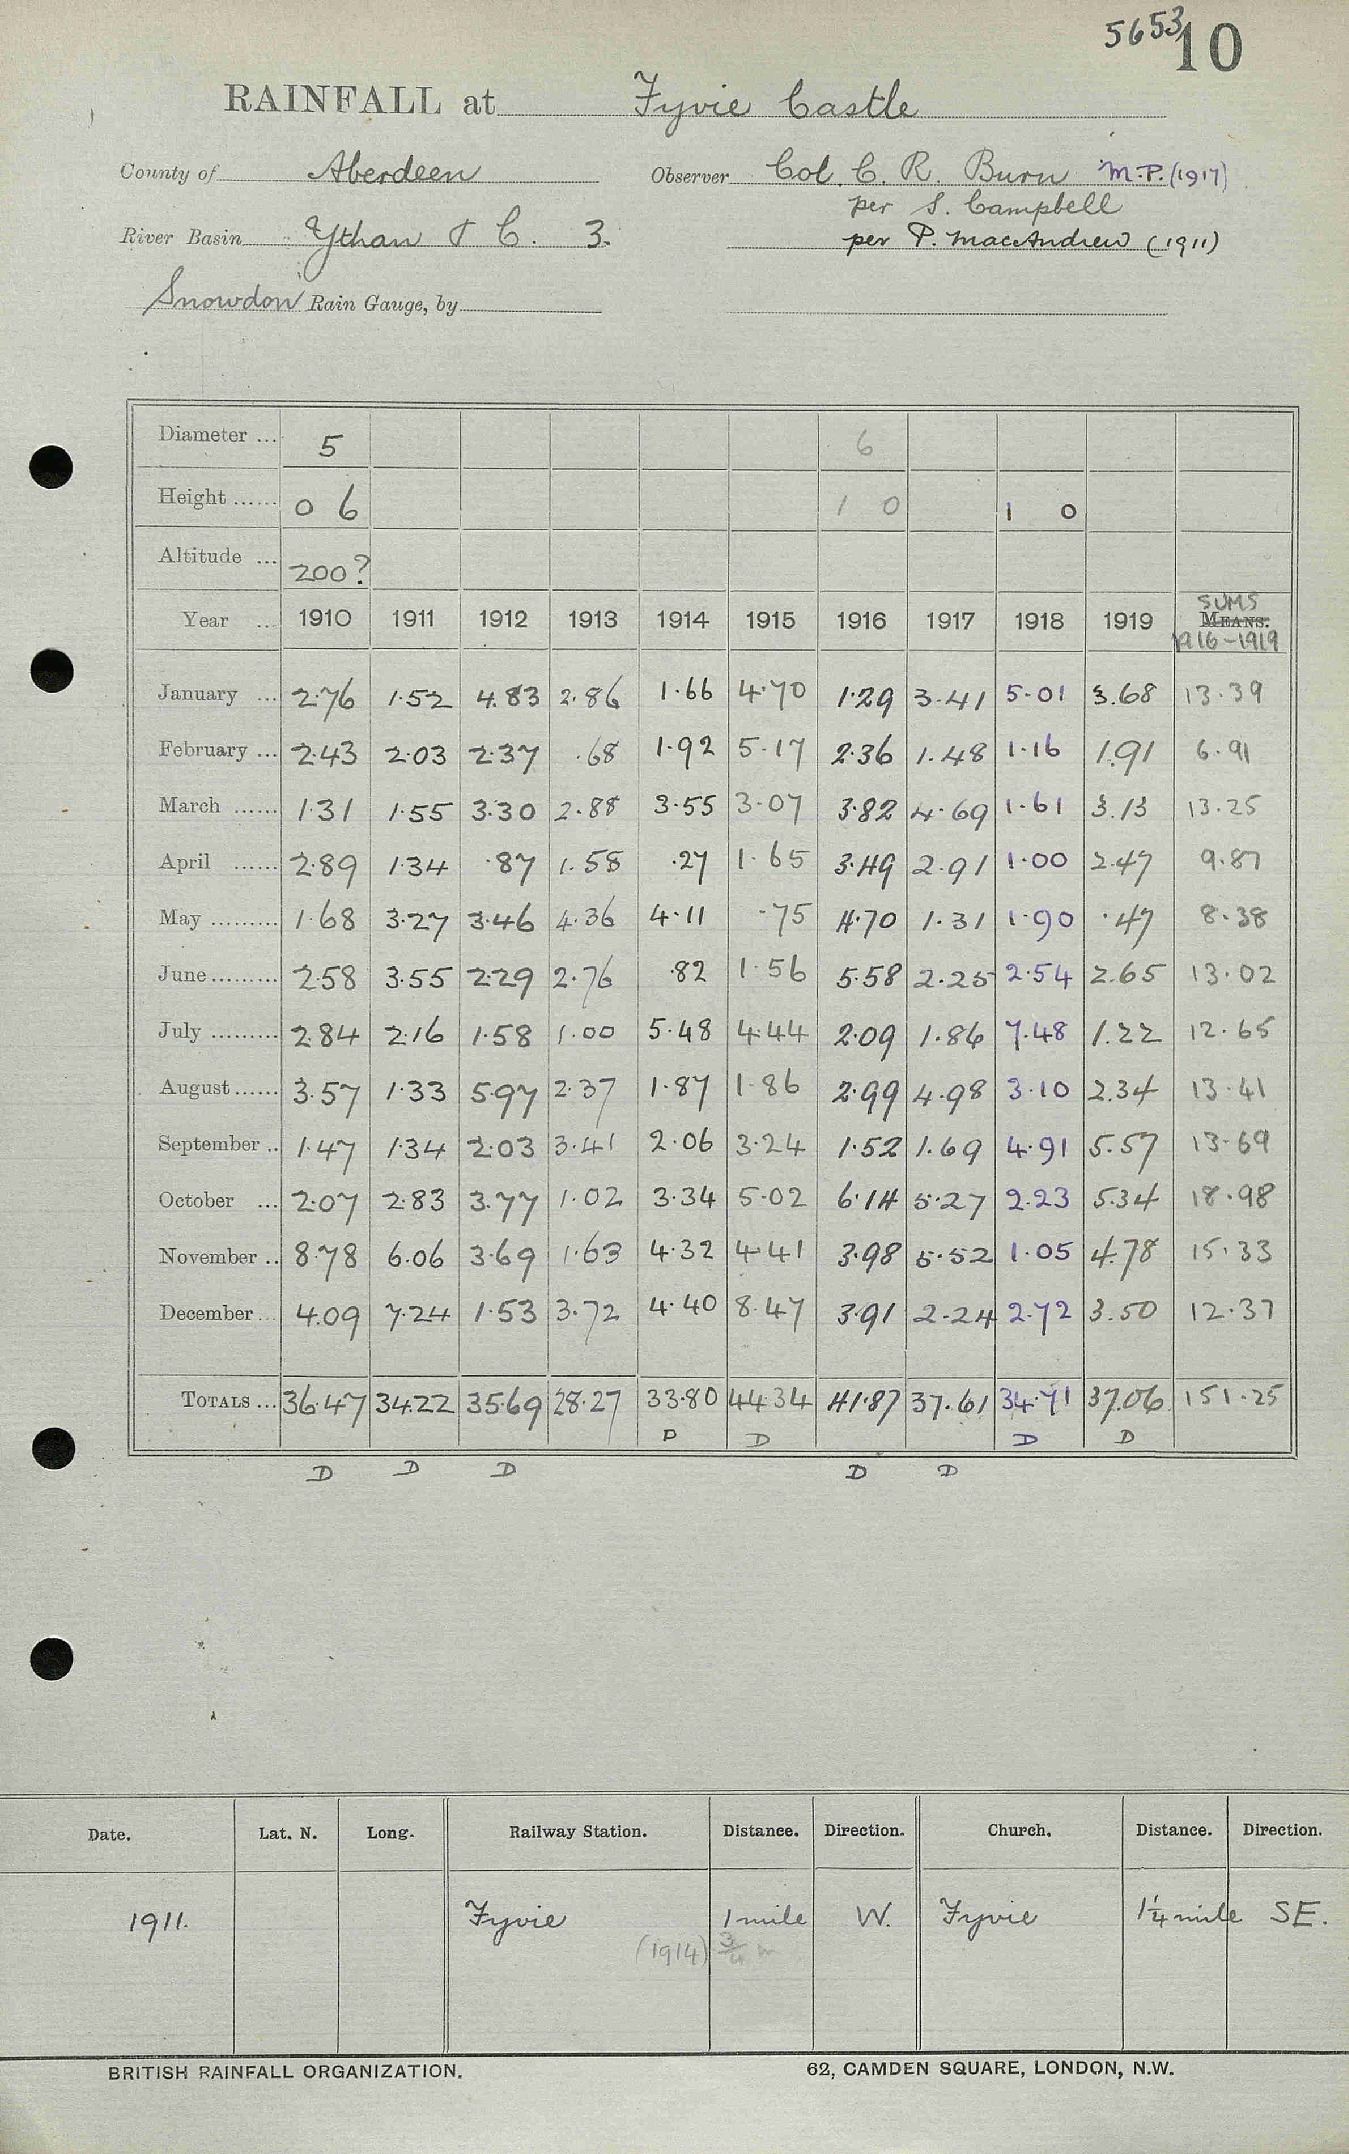 5653 10
RAINFALL at Fyvie Castle
County of Aberdeen Observer Col. C. R. Burn M.P. (1917)
per S. Campbell
River Basin Ythan & C. 3. per P. MacAndrew (1911)
Snowdon Rain Gauge, by
Diameter ... 5 6
Height ...... 0 6 1 0 1 0
Altitude ... 200?
Year ... 1910 1911 1912 1913 1914 1915 1916 1917 1918 1919 SUMS MEANS. 1916-1919
January ... 2.76 1.52 4.83 2.86 1.66 4.70 1.29 3.41 5.01 3.68 13.39
February ... 2.43 2.03 2.37 .68 1.92 5.17 2.36 1.48 1.16 1.91 6.91
March ...... 1.31 1.55 3.30 2.88 3.55 3.07 3.82 4.69 1.61 3.13 13.25
April ...... 2.89 1.34 .87 1.58 .27 1.65 3.49 2.91 1.00 2.47 9.87
May ......... 1.68 3.27 3.46 4.36 4.11 .75 4.70 1.31 1.90 .47 8.38
June ......... 2.58 3.55 2.29 2.76 .82 1.56 5.58 2.25 2.54 2.65 13.02
July ......... 2.84 2.16 1.58 1.00 5.48 4.44 2.09 1.86 7.48 1.22 12.65
August ...... 3.57 1.33 5.97 2.37 1.87 1.86 2.99 4.98 3.10 2.34 13.41
September .. 1.47 1.34 2.03 3.41 2.06 3.24 1.52 1.69 4.91 5.57 13.69
October ... 2.07 2.83 3.77 1.02 3.34 5.02 6.14 5.27 2.23 5.34 18.98
November .. 8.78 6.06 3.69 1.63 4.32 4.41 3.98 5.52 1.05 4.78 15.33
December ... 4.09 7.24 1.53 3.72 4.40 8.47 3.91 2.24 2.72 3.50 12.37
TOTALS ... 36.47 34.22 35.69 28.27 33.80 44.34 41.87 37.61 34.71 37.06 151.25
D D D D
D D D D D
Date. Lat. N. Long. Railway Station. Distance. Direction. Church. Distance. Direction.
1911. Fyvie 1 mile W. Fyvie 1¼ mile SE.
(1914) ¾ m
BRITISH RAINFALL ORGANIZATION. 62, CAMDEN SQUARE, LONDON, N.W.